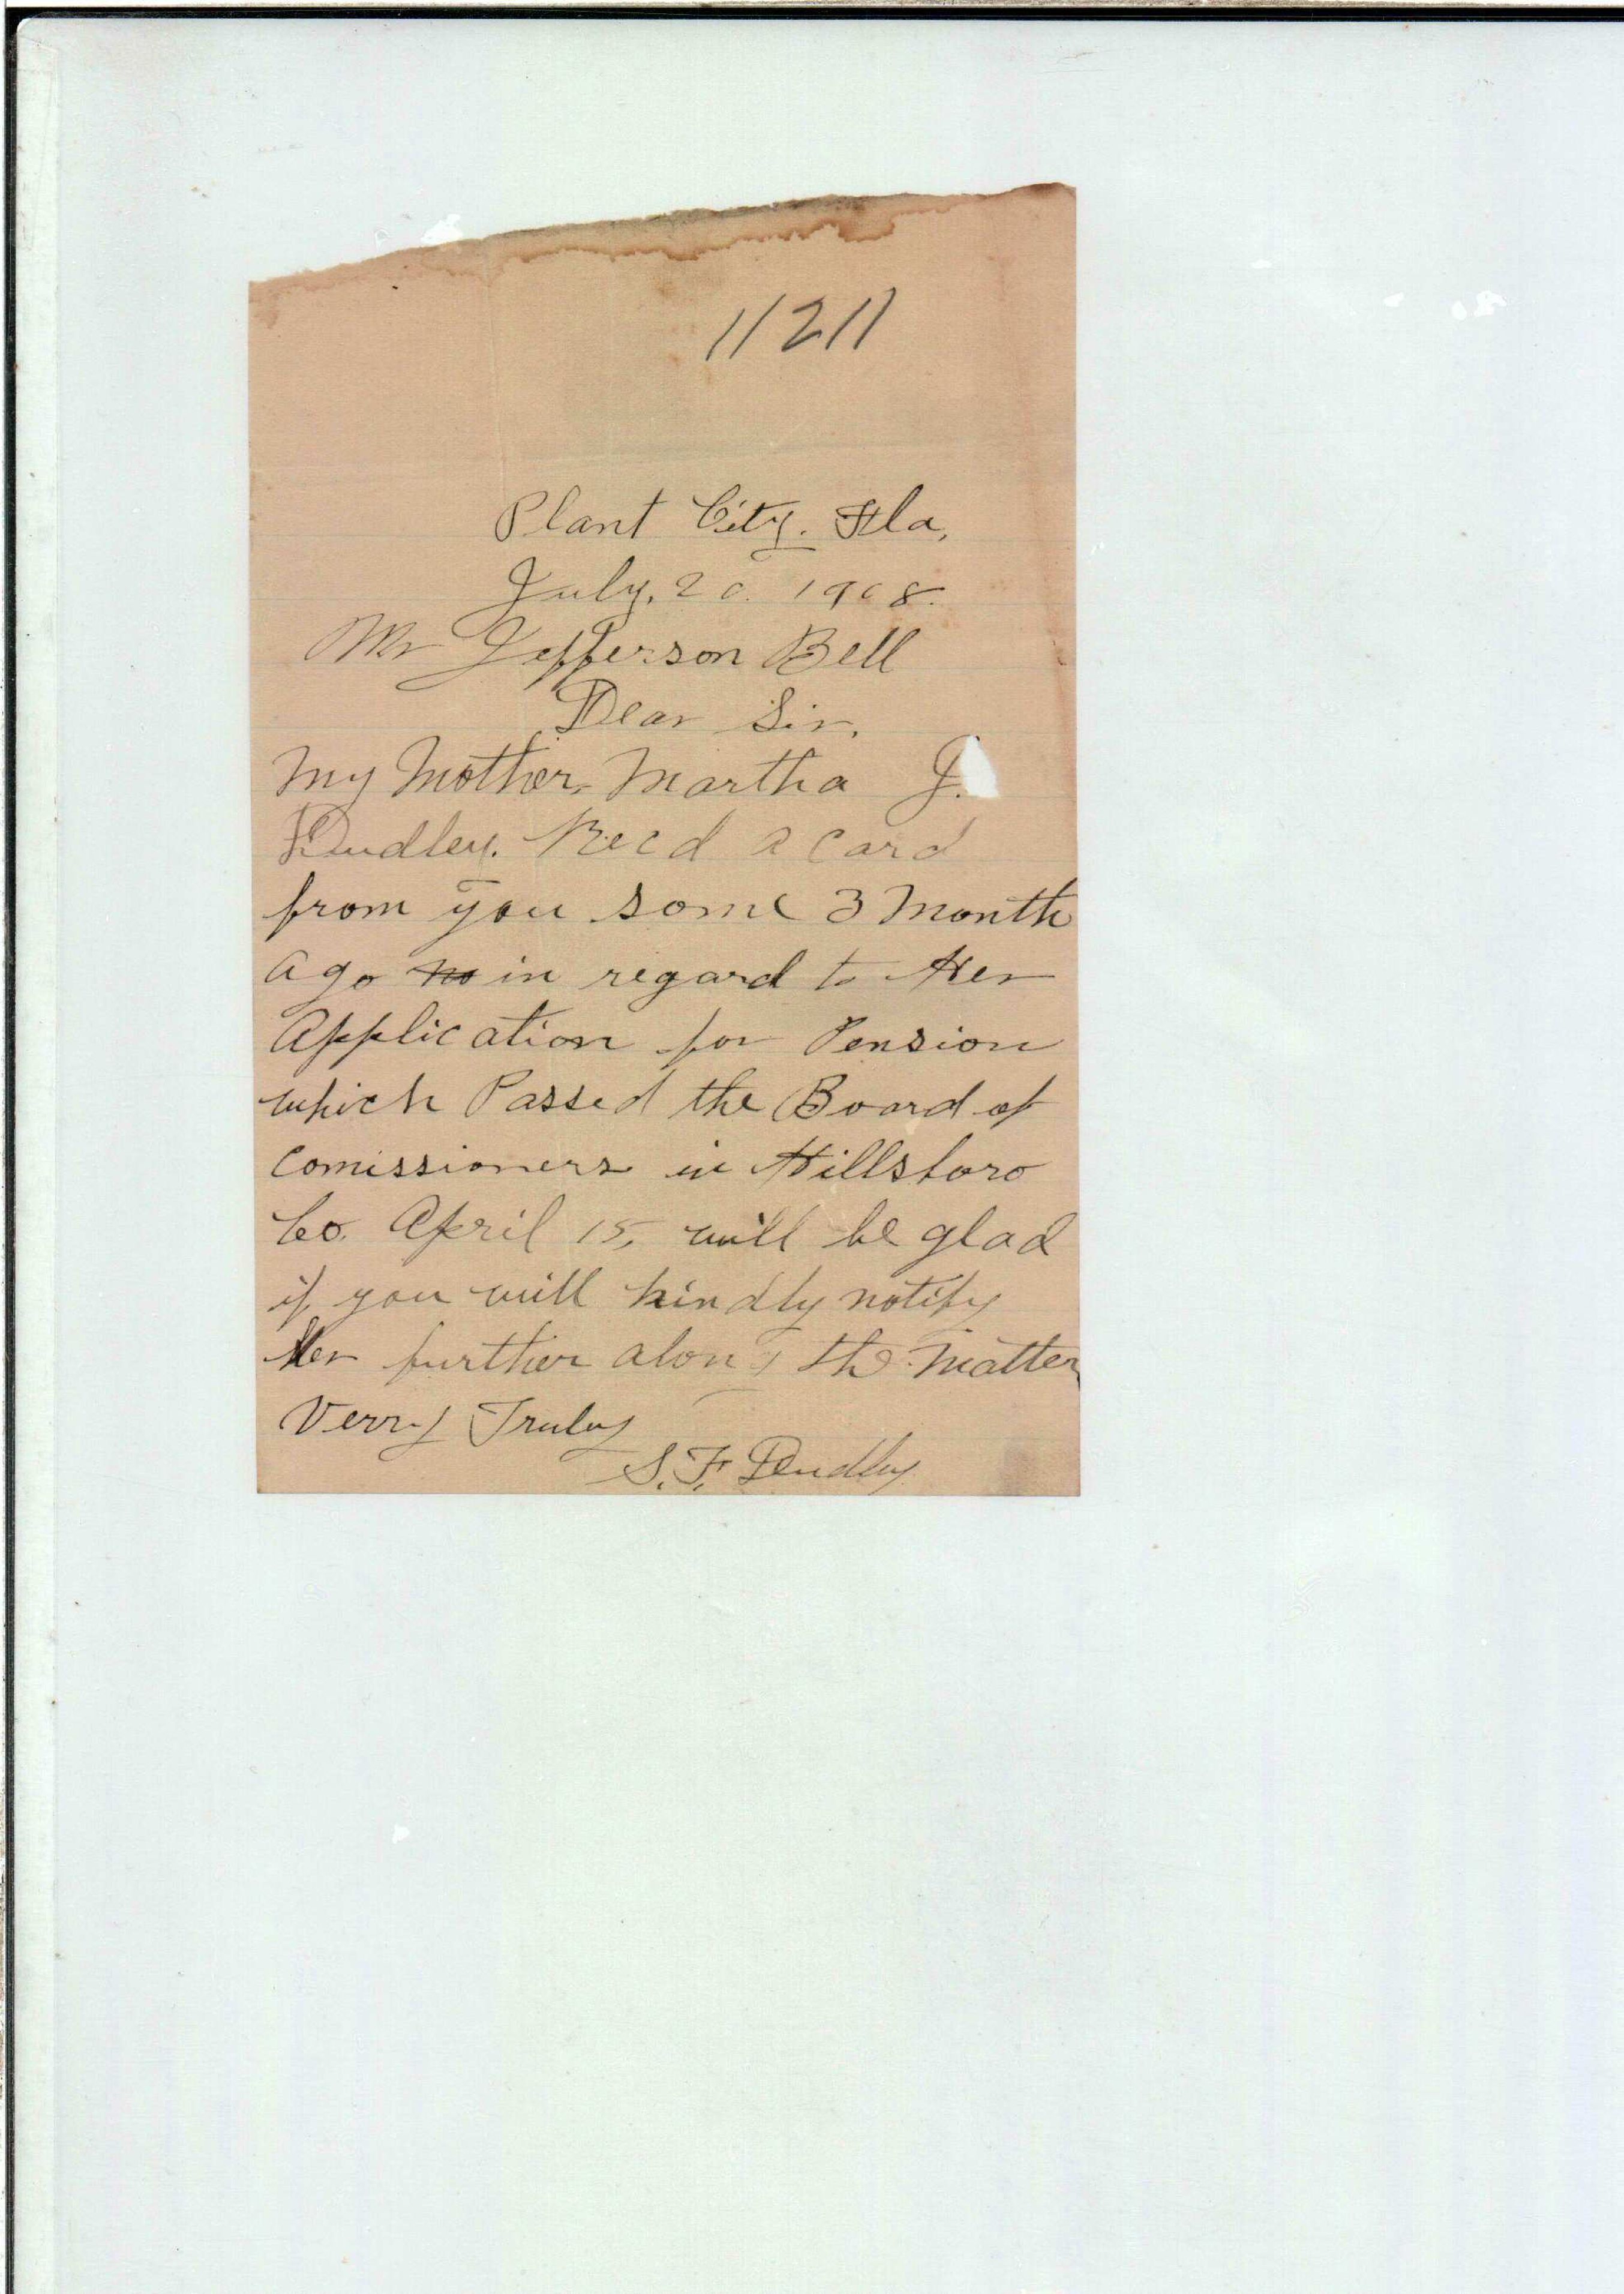 11211
Plant City. Fla,
July. 20. 1908.
Mr Jefferson Bell
Dear Sir,
My Mother, Martha J.
Dudley. Recd a Card
from you some 3 Month
ago in regard to Her
Application for Pension
which Passed the Board of
Comissioners in Hillsboro
Co. April 15, will be glad
if you will kindly notify
Her further along the Matter
Verry Truly
S. F. Dudley